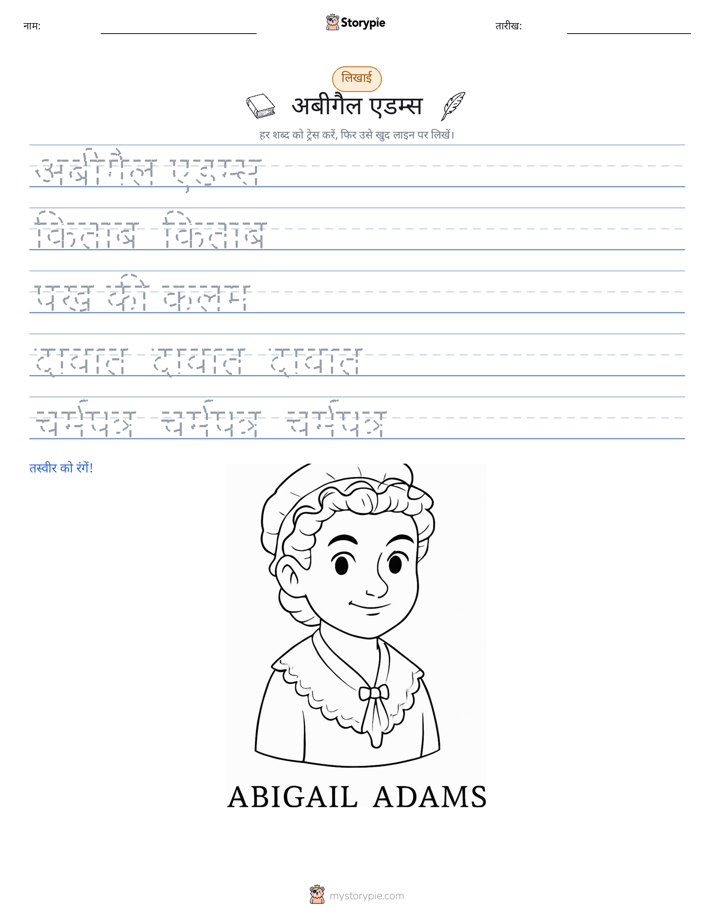 नाम:
Storypie
तारीख:
लिखाई
अबीगैल एडम्स
हर शब्द को ट्रेस करें, फिर उसे खुद लाइन पर लिखें।
अबीगैल एडम्स
किताब किताब
पंख की कलम
दावात दावात दावात
चर्मपत्र चर्मपत्र चर्मपत्र
तस्वीर को रंगें!
ABIGAIL ADAMS
mystorypie.com